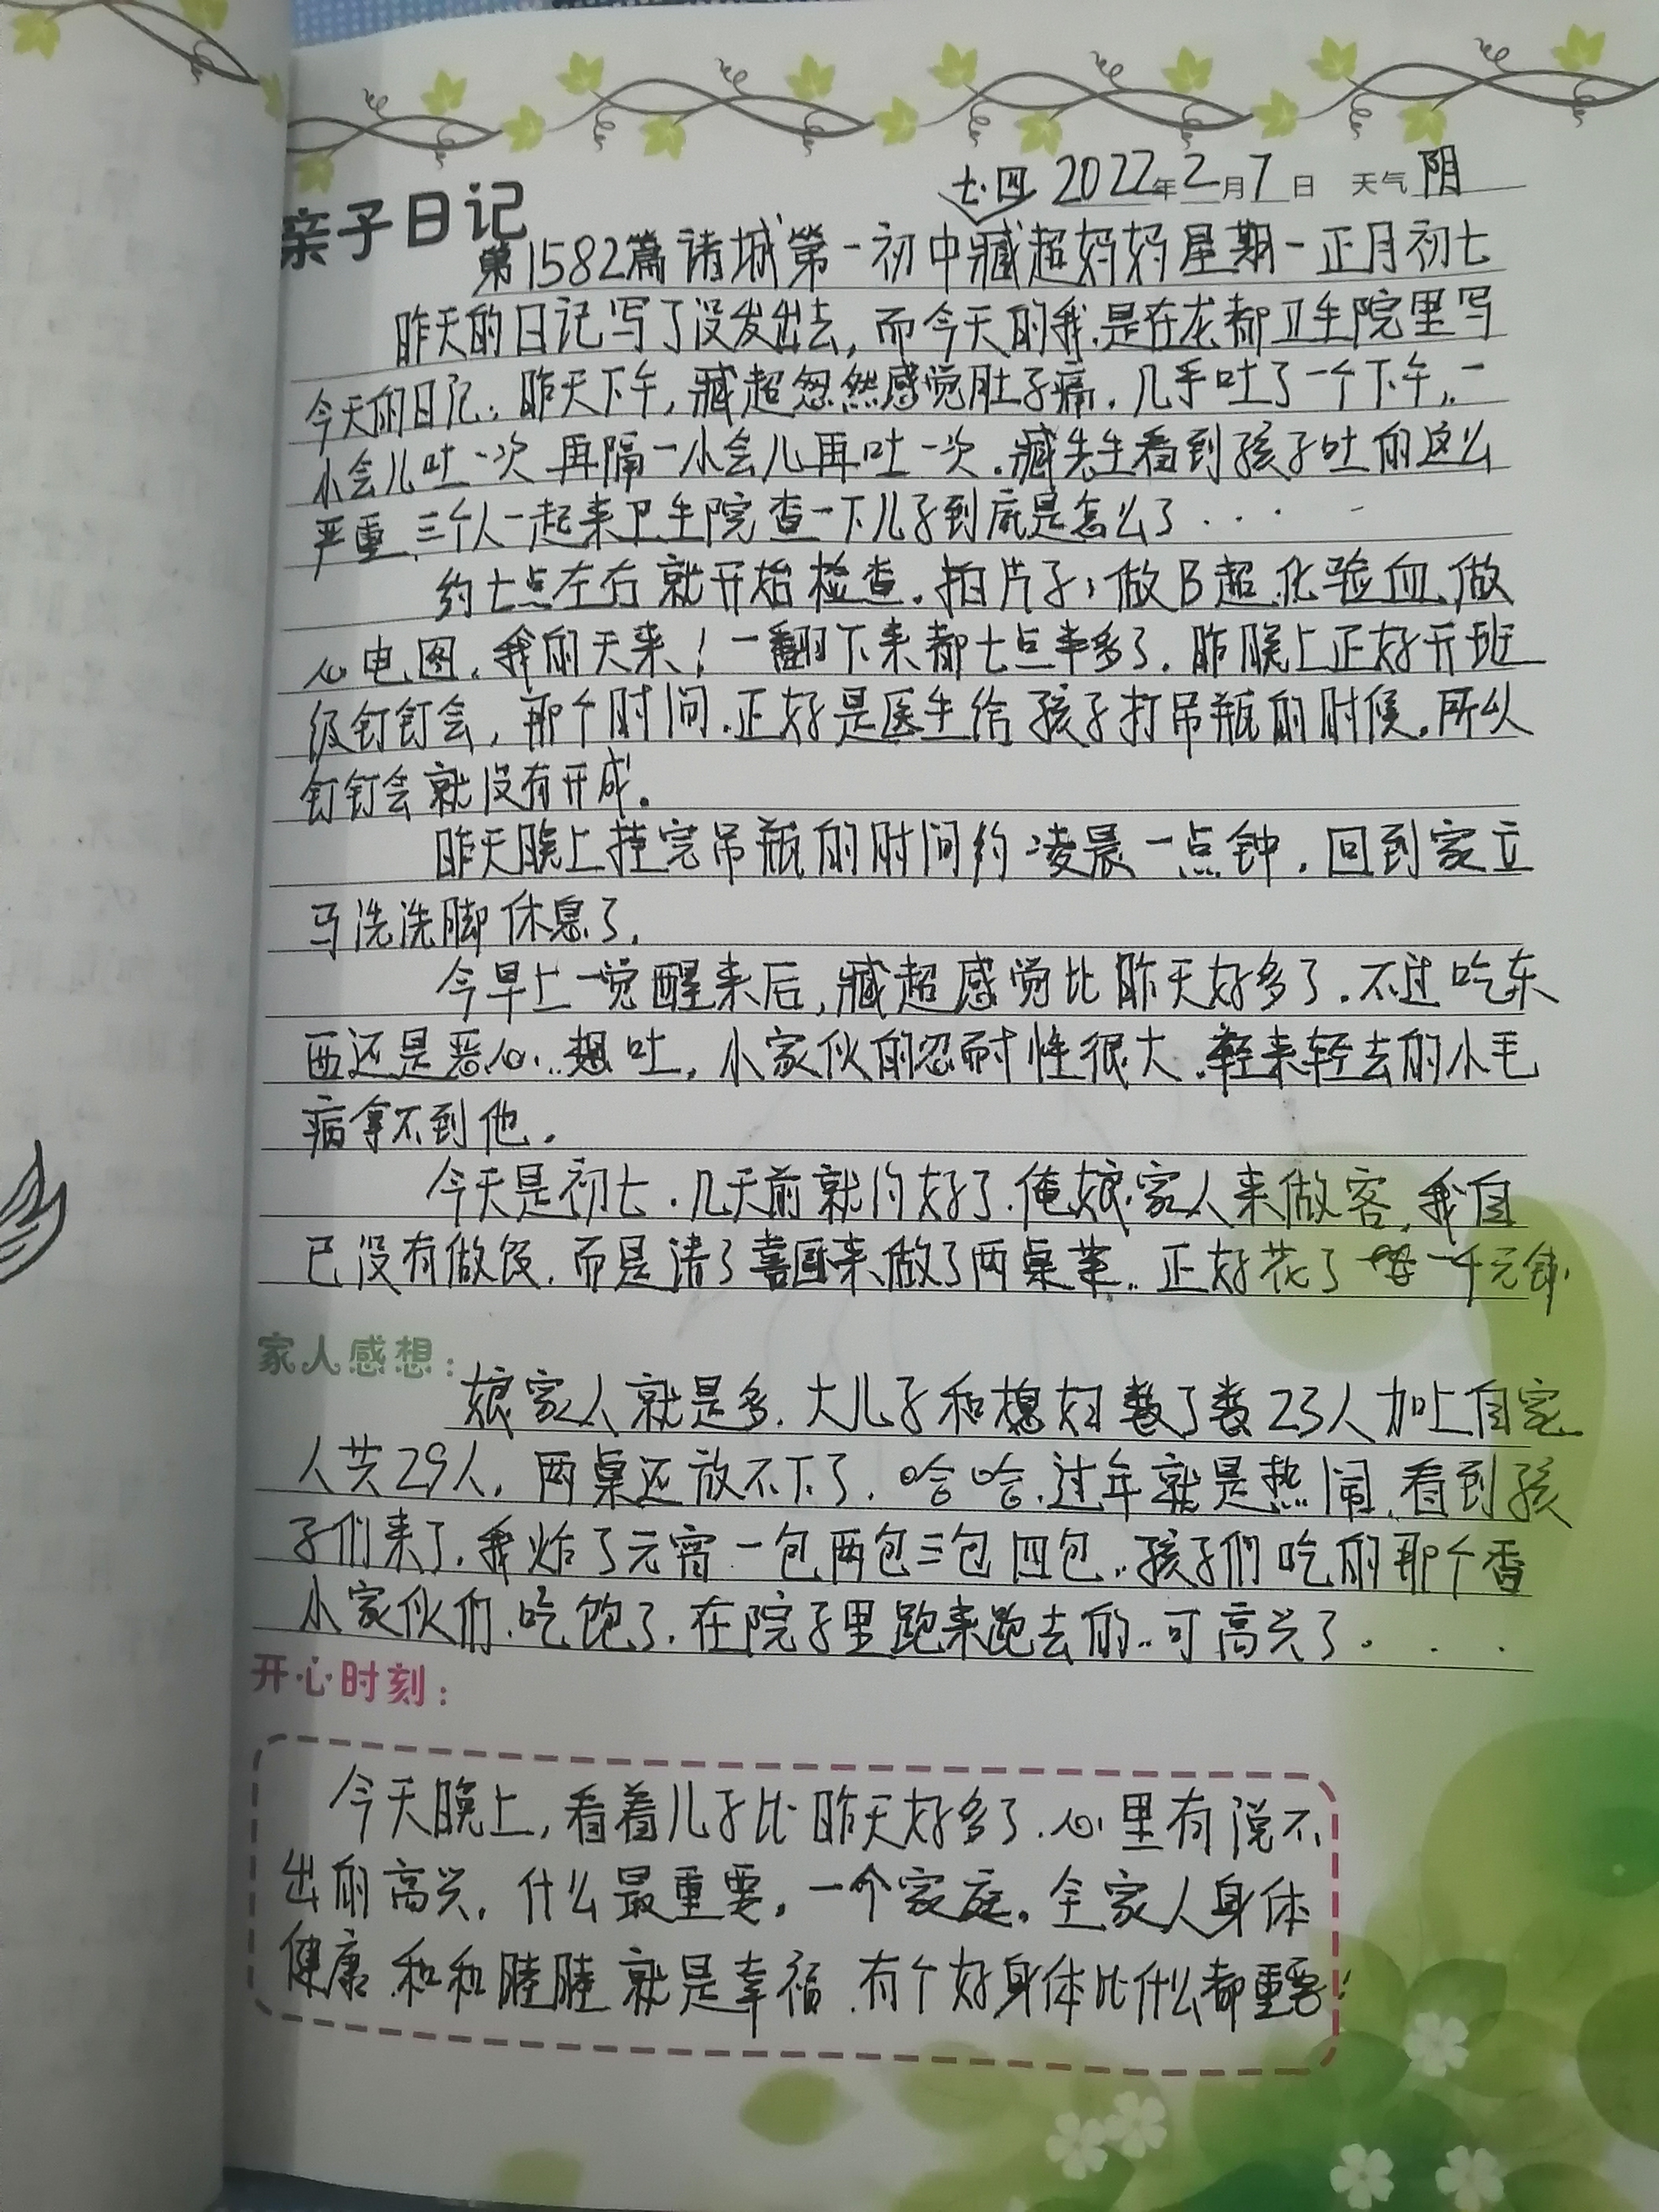 七·四 2022年2月7日 天气阴
亲子日记
第1582篇诸城第一初中臧超妈妈星期一正月初七
昨天的日记写了没发出去,而今天的我.是在龙都卫生院里写
今天的日记.昨天下午,臧超忽然感觉肚子痛.几乎吐了一个下午,一
小会儿吐一次 再隔一小会儿再吐一次.臧先生看到孩子吐的这么
严重、三个人一起来卫生院查一下儿子到底是怎么了....
约七点左右就开始检查.拍片子,做B超.化验血、做
心电图.我的天来!一翻下来都七点半多了.昨晚上正好开班
级钉钉会,那个时间.正好是医生给孩子打吊瓶的时候.所以
钉钉会就没有开成。
昨天晚上挂完吊瓶的时间约凌晨一点钟.回到家立
马洗洗脚休息了.
今早上一觉醒来后,臧超感觉比昨天好多了.不过吃东
西还是恶心..想吐,小家伙的忍耐性很大.轻来轻去的小毛
病拿不到他.
今天是初七.几天前就约好了.俺娘家人来做客,我自
已没有做饭.而是请了喜厨来做了两桌菜..正好花了 一千元钱.
家人感想:
娘家人就是多.大儿子和媳妇数了数23人加上自家
人共29人.两桌还放不下了.哈哈.过年就是热闹,看到孩
子们来了.我炸了元宵一包两包三包四包..孩子们吃的那个香
小家伙们.吃饱了.在院子里跑来跑去的..可高兴了...
开心时刻:
今天晚上,看着儿子比昨天好多了.心里有说不
出的高兴.什么最重要.一个家庭.全家人身体
健康.和和睦睦就是幸福.有个好身体比什么都重要!